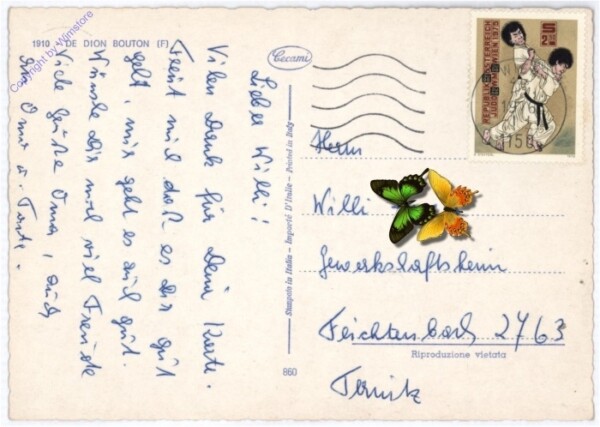 1910 - DE DION BOUTON (F)
Copyright by Winstore
Lieber Willi!
Vielen Dank für Dein Karte.
Freut mich daß es dir gut
geht, mir geht es auch gut.
Wünsche Dir noch viel Freude
Viele Grüße Oma, auch
Omi u. Tante.
Cecami
Stampato in Italia - Importé D'Italie - Printed in Italy
860
REPUBLIK ÖSTERREICH
JUDO WM WIEN 1975
S 2
1150
Herrn
Willi
Gewerkschaftsheim
Feichtenbach 2763
Pernitz
Riproduzione vietata